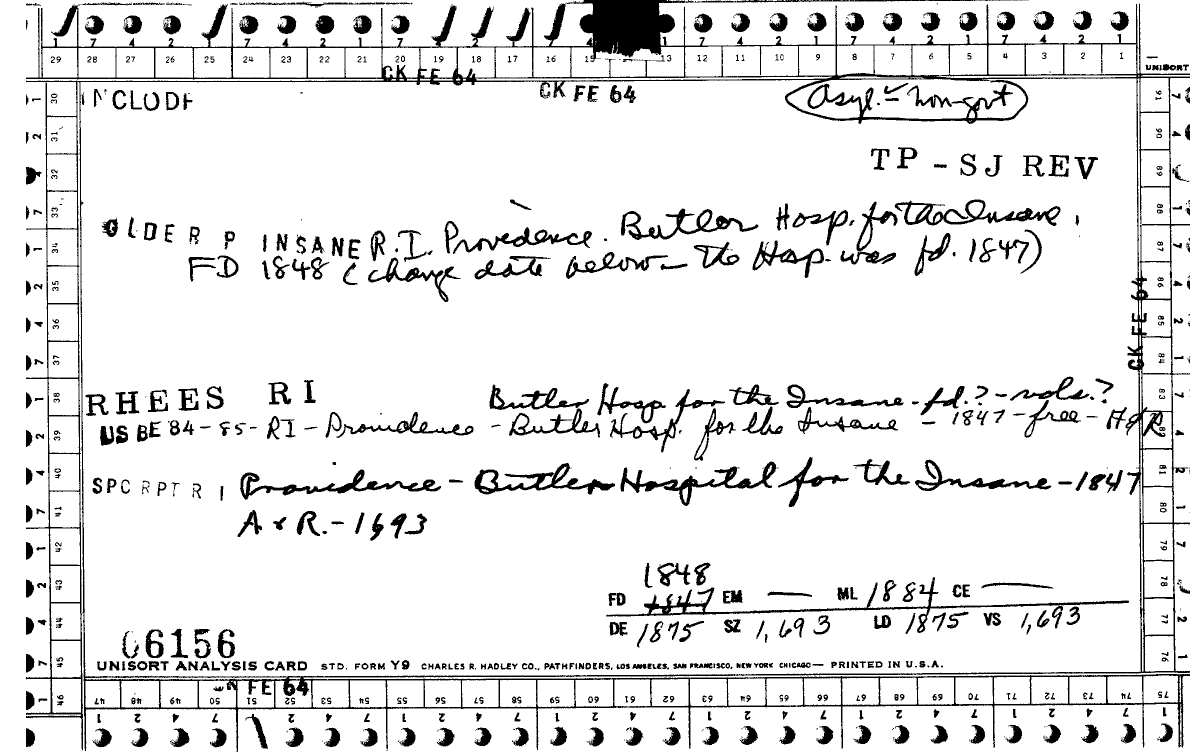 1 7 4 2 1 7 4 2 1 7 4 2 1 7 4 2 1 7 4 2 1 7 4 2 1
29 28 27 26 25 24 23 22 21 20 19 18 17 16 15 14 13 12 11 10 9 8 7 6 5 4 3 2 1
UNISORT
CK FE 64
CK FE 64
INCLUDE
Asyl. - non-govt
TP - SJ REV
OLDER P INSANE R.I. Providence. Butler Hosp. for the Insane.
FD 1848 (change date below - the Hosp. was fd. 1847)
CK FE 64
RHEES RI Butler Hosp for the Insane - fd.? - vols.?
US BE 84-85-RI-Providence - Butler Hosp. for the Insane - 1847-free-
SPC RPT RI Providence - Butler Hospital for the Insane - 1847
A & R. - 1693
1848
FD 1847 EM — ML 1884 CE —
DE 1875 SZ 1,693 LD 1875 VS 1,693
06156
UNISORT ANALYSIS CARD STD. FORM Y9 CHARLES R. HADLEY CO., PATHFINDERS, LOS ANGELES, SAN FRANCISCO, NEW YORK CHICAGO— PRINTED IN U.S.A.
FE 64
47 48 49 50 51 52 53 54 55 56 57 58 59 60 61 62 63 64 65 66 67 68 69 70 71 72 73 74 75